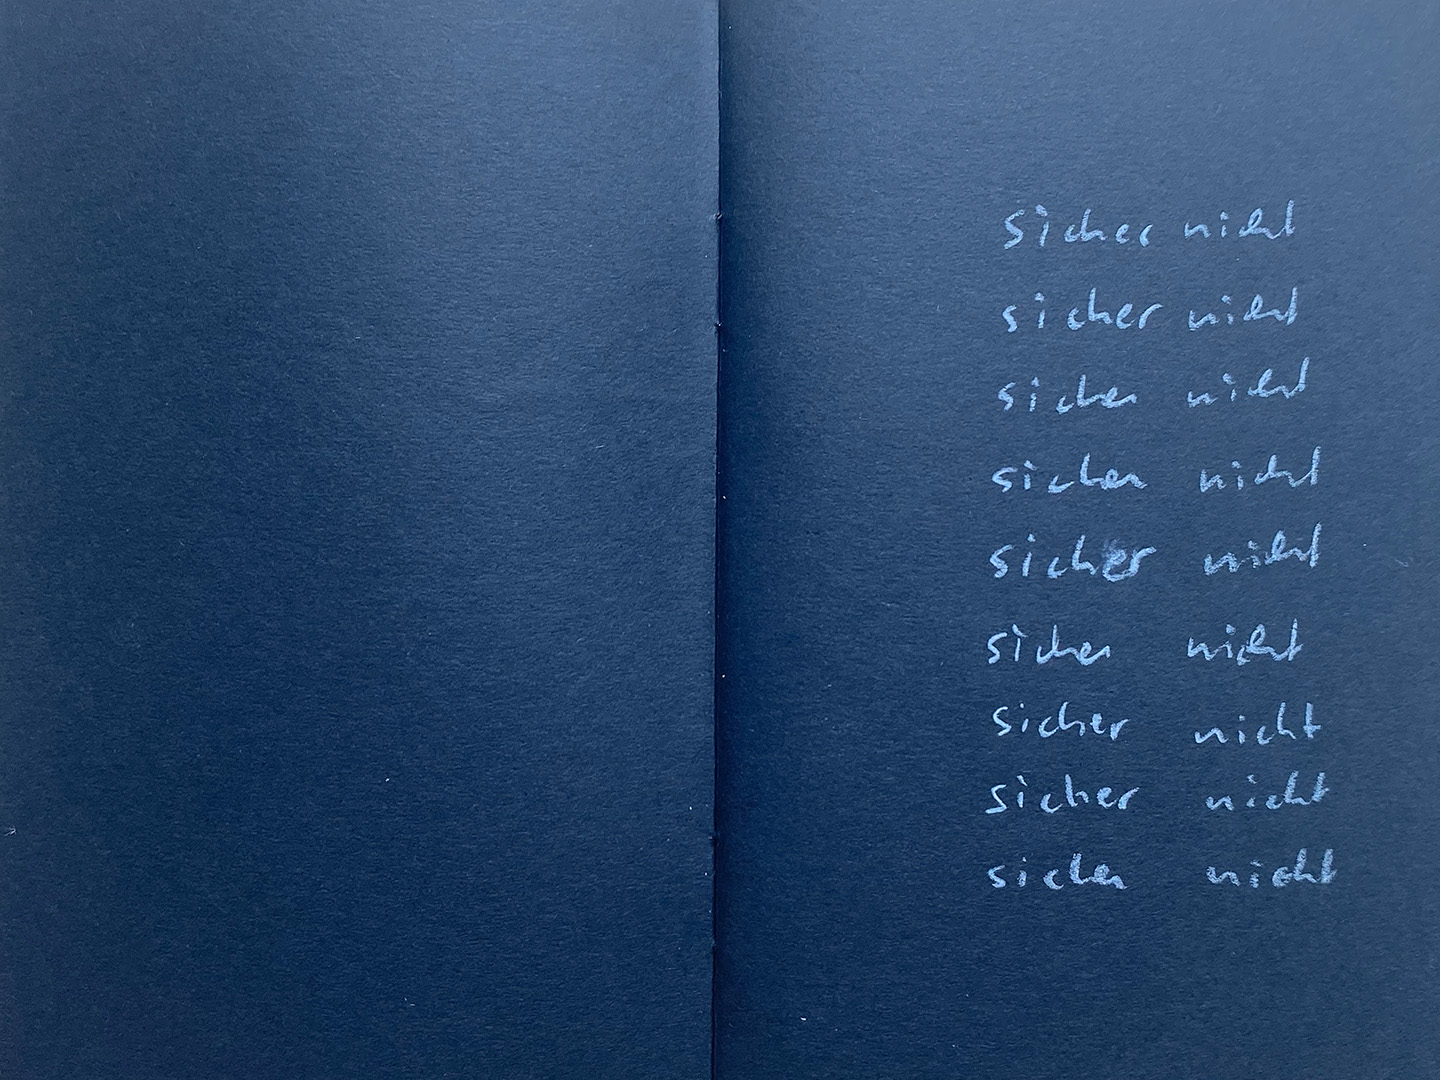 sicher nicht
sicher nicht
sicher nicht
sicher nicht
sicher nicht
sicher nicht
sicher nicht
sicher nicht
sicher nicht